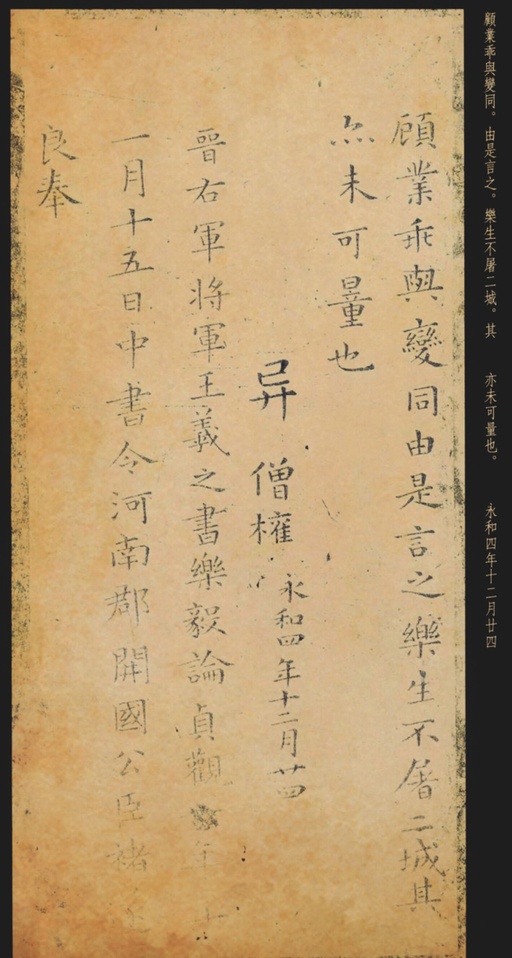 顧業乖與變同。由是言之。樂生不屠二城。其　亦未可量也。　永和四年十二月廿四
顧業乖與變同由是言之樂生不屠二城其
亦未可量也
异 僧權
永和四年十二月廿四
晉右軍将軍王羲之書樂毅論貞觀年十
一月十五日中書令河南郡開國公臣褚遂
良奉